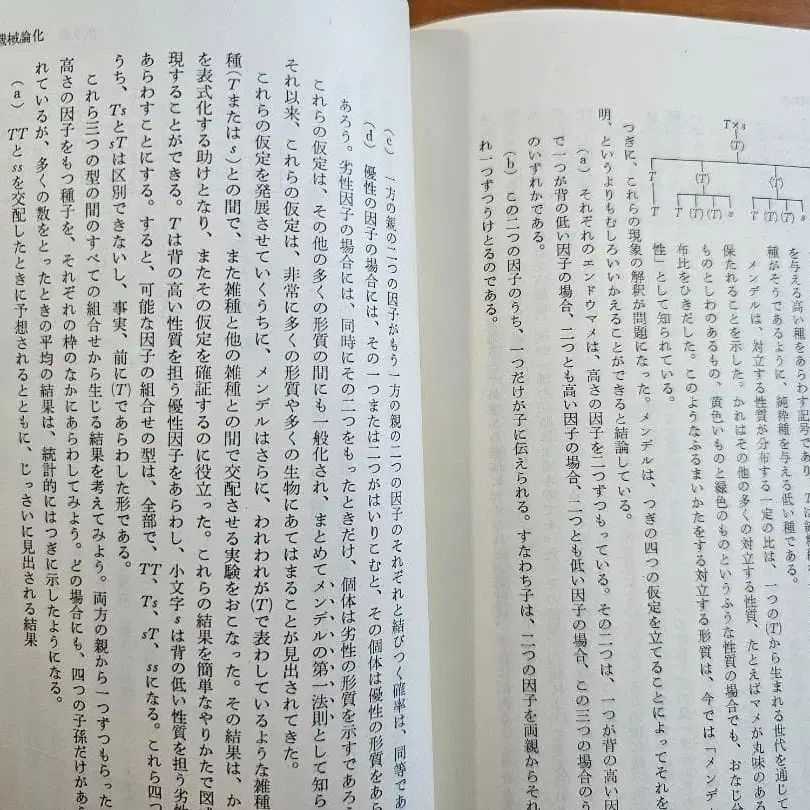 T×s
(T)
T (T)
T T (T) (T) s T (T) (T)
を与える高い種をあらわす記号であり、
種がそうであるように、純粋種を与える低い種である。
メンデルは、対立する性質が分布する一定の比は、一つの(T)から生まれる世代を通じて
保たれることを示した。かれはその他の多くの対立する性質、たとえばマメが丸味のある
ものとしわのあるもの、黄色いものと緑色のものというふうな性質の場合でも、おなじ分
布比をひきだした。このようなふるまいかたをする対立する形質は、今では「メンデ
性」として知られている。
つぎに、これらの現象の解釈が問題になった。メンデルは、つぎの四つの仮定を立てることによってそれを
明、というよりもむしろいいかえることができると結論している。
(a) それぞれのエンドウマメは、高さの因子を二つずつもっている。その二つは、一つが背の高い因
で一つが背の低い因子の場合、二つとも高い因子の場合、二つとも低い因子の場合、この三つの場合のう
のいずれかである。
(b) この二つの因子のうち、一つだけが子に伝えられる。すなわち子は、二つの因子を両親からそれ
れ一つずつうけとるのである。
機械論化
(c) 一方の親の二つの因子がもう一方の親の二つの因子のそれぞれと結びつく確率は、同等であ
(d) 優性の因子の場合には、その一つまたは二つがはいりこむと、その個体は優性の形質をあら
あろう。劣性因子の場合には、同時にその二つをもったときだけ、個体は劣性の形質を示すであろ
これらの仮定は、その他の多くの形質の間にも一般化され、まとめてメンデルの第一法則として知ら
それ以来、これらの仮定は、非常に多くの形質や多くの生物にあてはまることが見出されてきた。
これらの仮定を発展させていくうちに、メンデルはさらに、われわれが(T)で表わしているような雑種
種(Tまたはs)との間で、また雑種と他の雑種との間で交配させる実験をおこなった。その結果は、か
を表式化する助けとなり、またその仮定を確証するのに役立った。これらの結果を簡単なやりかたで図
現することができる。Tは背の高い性質を担う優性因子をあらわし、小文字sは背の低い性質を担う劣
あらわすことにする。すると、可能な因子の組合せの型は、全部で、TT、Ts、sT、ssになる。これら四つ
うち、TsとsTは区別できないし、事実、前に(T)であらわした形である。
これら三つの型の間のすべての組合せから生じる結果を考えてみよう。両方の親から一つずつもらった
高さの因子をもつ種子を、それぞれの枠のなかにあらわしてみよう。どの場合にも、四つの子孫だけがあら
れているが、多くの数をとったときの平均の結果は、統計的にはつぎに示したようになる。
(a) TTとssを交配したときに予想されるとともに、じっさいに見出される結果